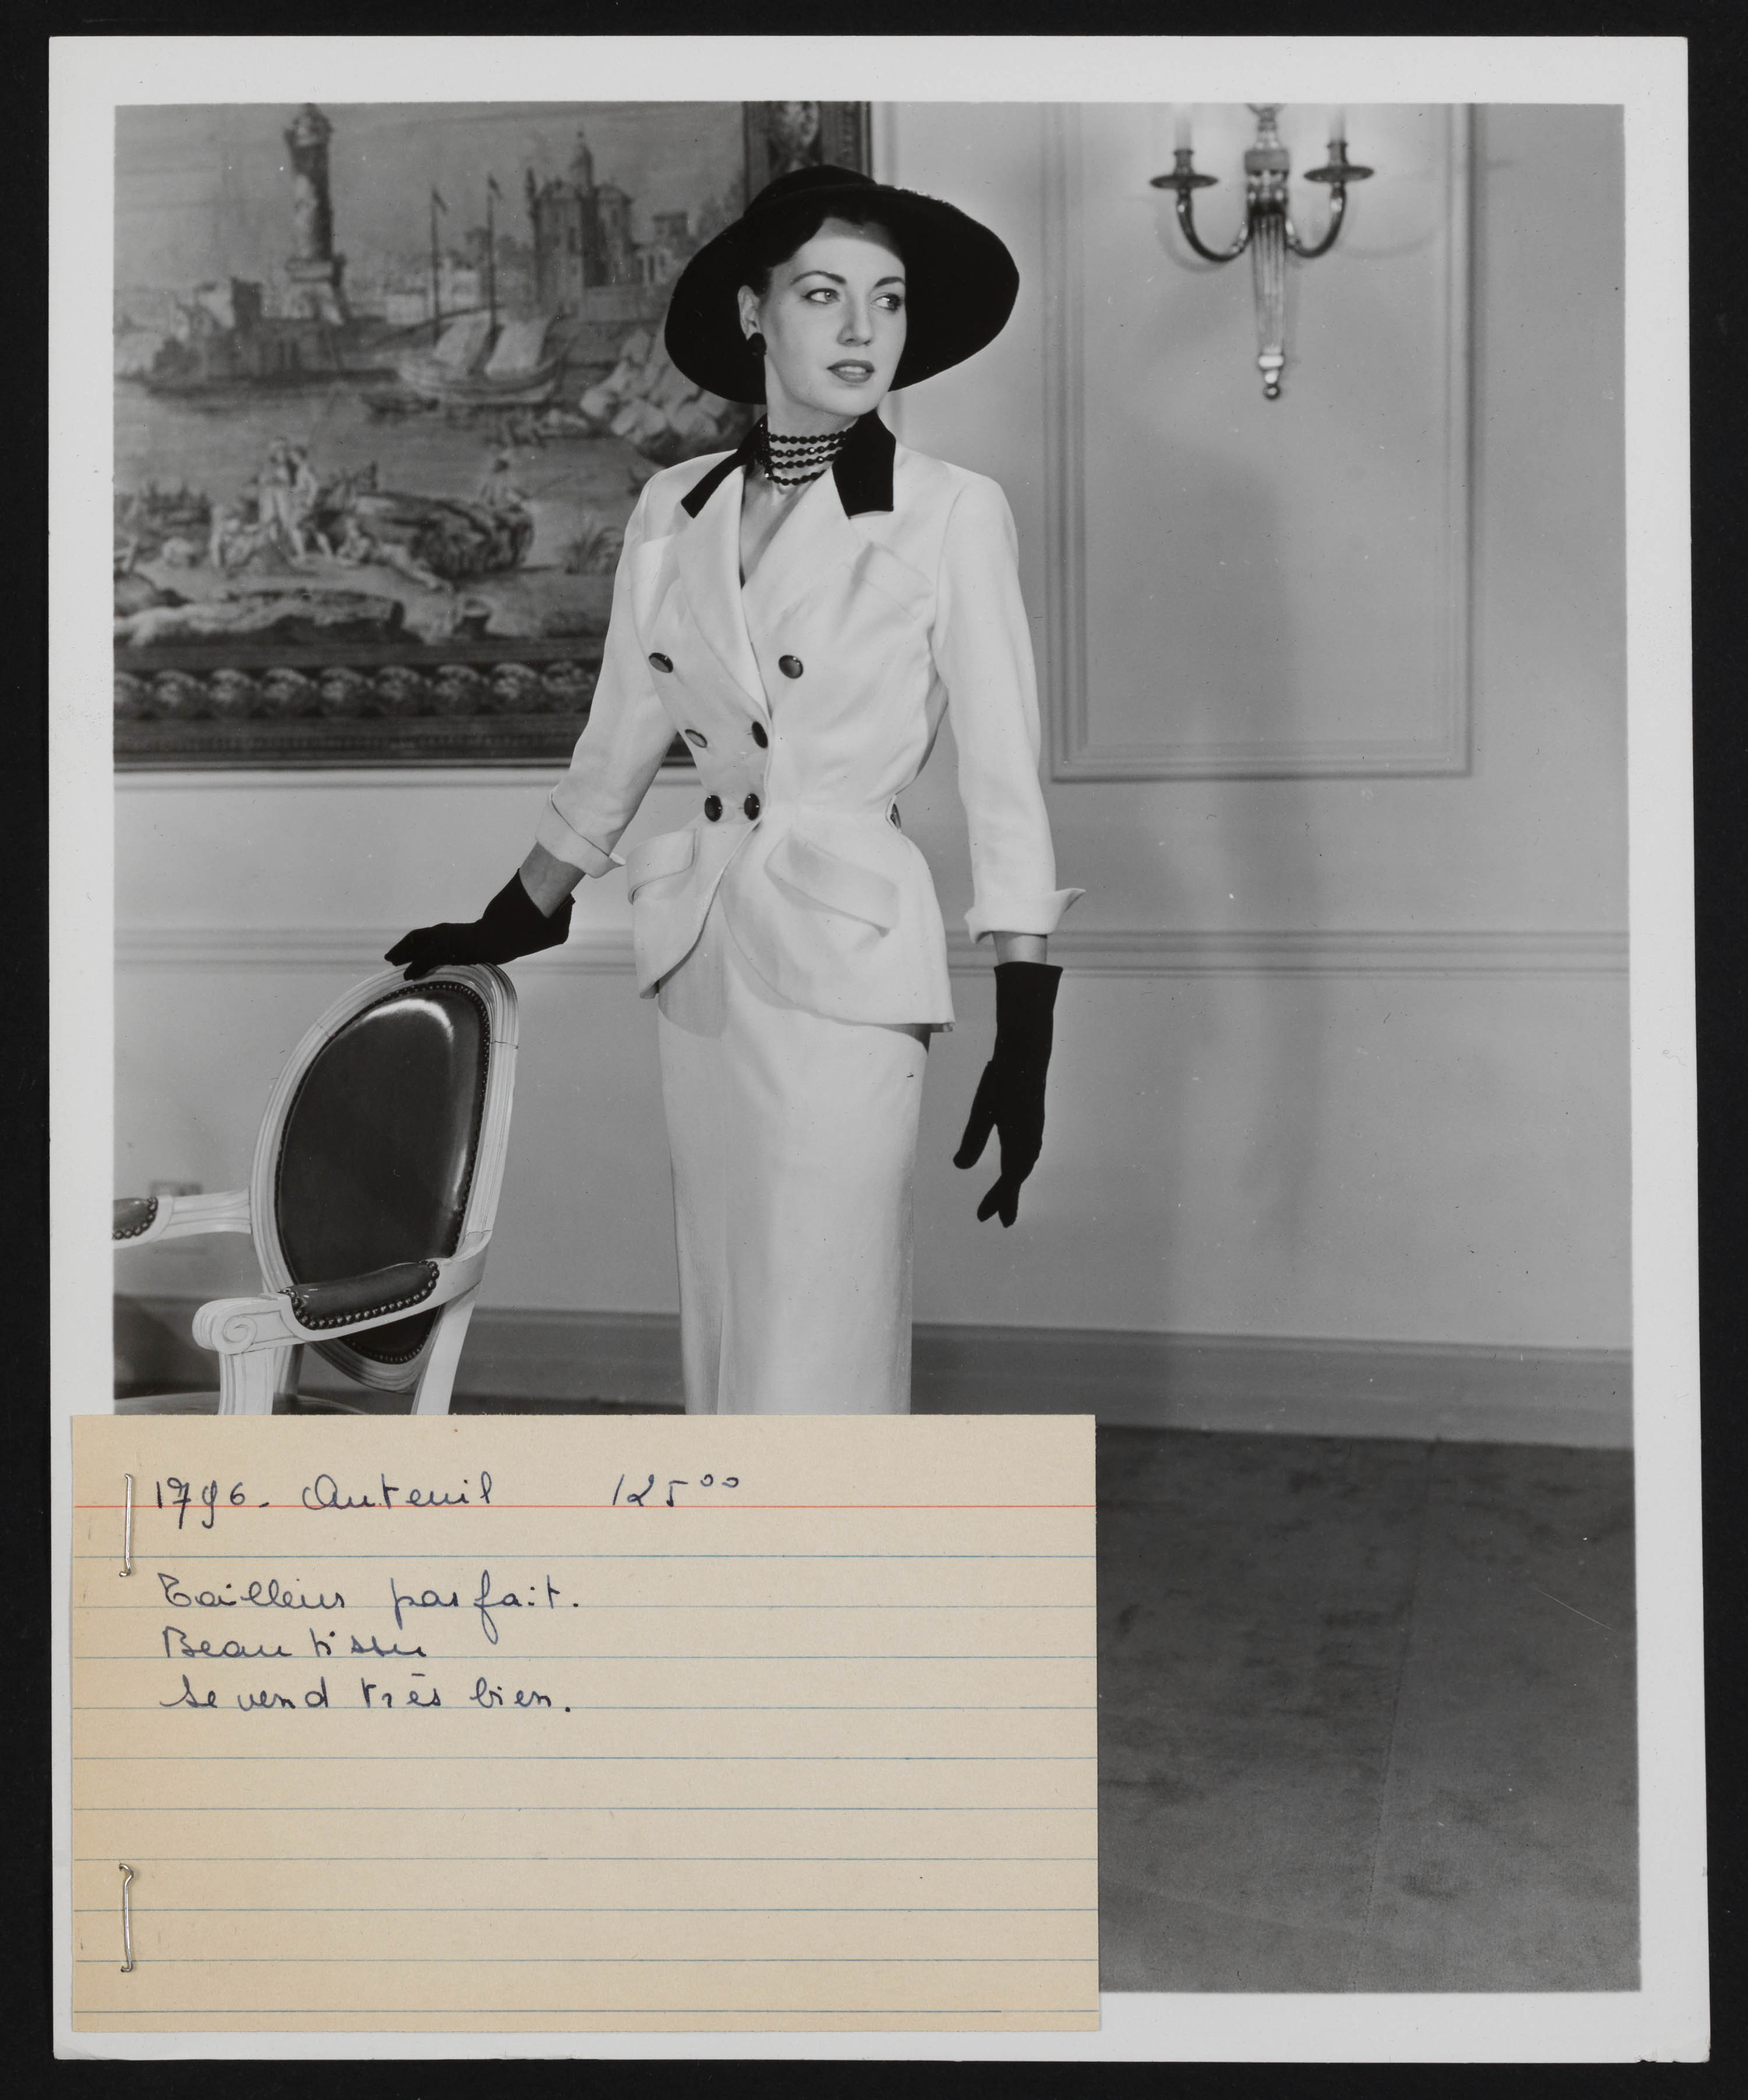 1796 - Auteuil 125⁰⁰
Tailleur parfait.
Beau tissu
Se vend très bien.